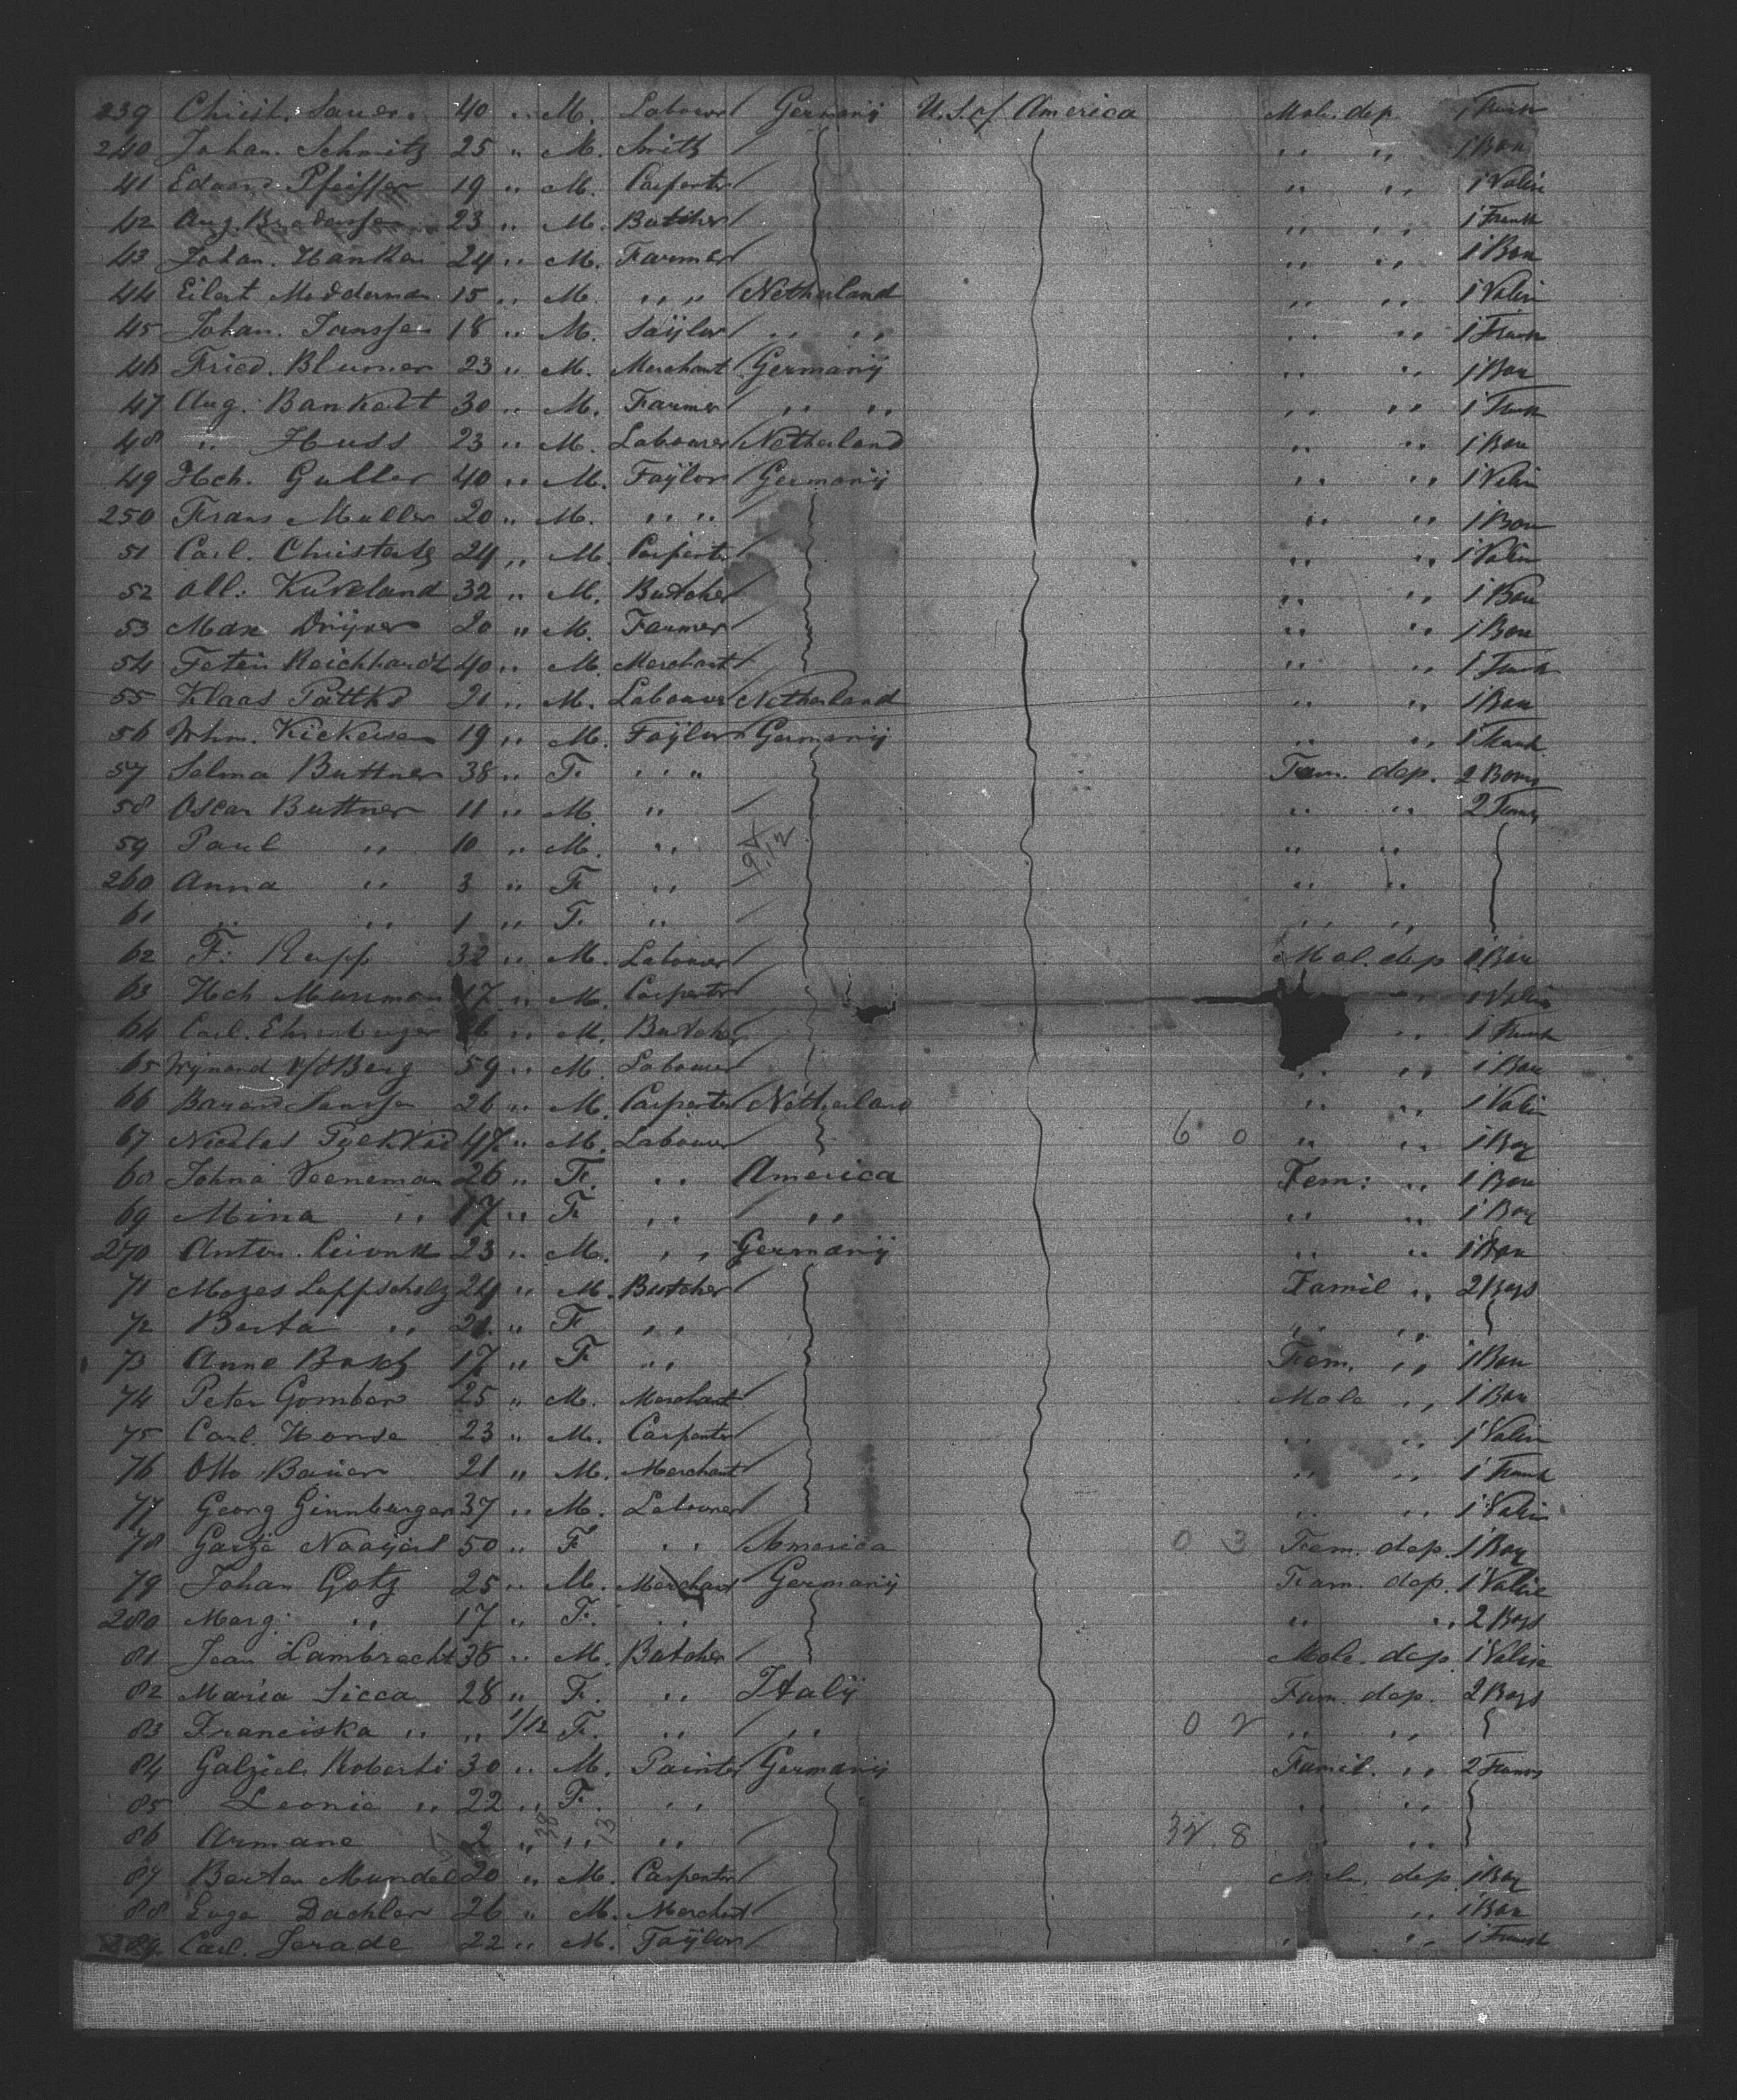 239 Christ. Sauer. 40 " M. Labour Germanÿ U.S. of America Male. dep. 1 Trunk
240 Johan. Schmitz 25 " M. Smith " " 1 Box
41 Eduard Pfeiffer 19 " M. Carpenter " " 1 Valise
42 Aug. 23 " M. Butcher " " 1 Trunk
43 Johan. Hanken 24 " M. Farmer " " 1 Box
44 Eilert Medderman 15 " M. " " Netherland " " 1 Valise
45 Johan. Janssen 18 " M. Taÿlor " " " " 1 Trunk
46 Fried. Blumer 23 " M. Merchant Germanÿ " " 1 Box
47 Aug. Bankelt 30 " M. Farmer " " " " 1 Trunk
48 " Huss 23 " M. Labourer Netherland " " 1 Box
49 Hch. Guller 40 " M. Taÿlor Germanÿ " " 1 Valise
250 Frans Muller 20 " M. " " " " 1 Box
51 Carl. 24 " M. Carpenter " " 1 Valise
52 All: Kuveland 32 " M. Butcher " " 1 Box
53 Max Drijver 20 " M. Farmer " " 1 Box
54 Reichhardt 40 " M. Merchant " " 1 Trunk
55 Klaas 21 " M. Labourer Netherland " " 1 Box
56 Whm. Kiekersen 19 " M. Taÿlor Germanÿ " " 1 Trunk
57 Selma Buttner 38 " F. " " Fam. dep. 2 Boxes
58 Oscar Buttner 11 " M. " " " 2 Trunks
59 Paul " 10 " M. " " "
260 Anna " 3 " F. " " "
61 " " 1 " F. " " "
62 F. Rupp 32 " M. Labourer Mal. dep 1 Box
63 Hch 17 " M. Carpenter " 1 Valise
64 Carl. Ehrenberger 26 " M. Butcher " 1 Trunk
65 Wijnand v/d Berg 59 " M. Labourer " " 1 Box
66 Barend Janssen 26 " M. Carpenter Netherland " " 1 Valise
67 Nicolas 47 " M. Labourer 6 0 " " 1 Box
68 Johna Veeneman 26 " F. " America Fem: " 1 Box
69 Mina " 17 " F " " " " 1 Box
270 Anton. 23 " M. " Germanÿ " " 1 Box
71 Mozes Loppscholz 24 " M. Butcher Famil " 2 Boxs
72 Berta " 21 " F " " "
73 Anna Bosch 17 " F " Fem. " 1 Box
74 Peter Gomber 25 " M. Merchant Male " 1 Box
75 Carl. Honse 23 " M. Carpenter " " 1 Valise
76 Otto Bauer 21 " M. Merchant " " 1 Trunk
77 Georg Ginnburger 37 " M. Labourer " " 1 Valise
78 50 " F " America 0 3 Fem. dep. 1 Box
79 Johan Gotz 25 " M. Merchant Germanÿ Fam. dep. 1 Valise
280 Marg. " 17 " F. " " " 2 Boxs
81 Jean Lambrecht 38 " M. Butcher Male. dep 1 Valise
82 Maria Sicca 28 " F. " Italÿ Fam. dep. 2 Boxs
83 Franciska " " 1/12 F. " " 0 2 " "
84 Roberti 30 " M. Painter Germanÿ Famil. " 2 Trunks
85 Leonie " 22 " F. " " "
86 Armane 2 " " " "
87 Mundel 20 " M. Carpenter Male. dep 1 Box
88 Dachler 26 " M. Merchant " 1 Box
289 Carl. Jerade 22 " M. Taÿlor " " 1 Trunk